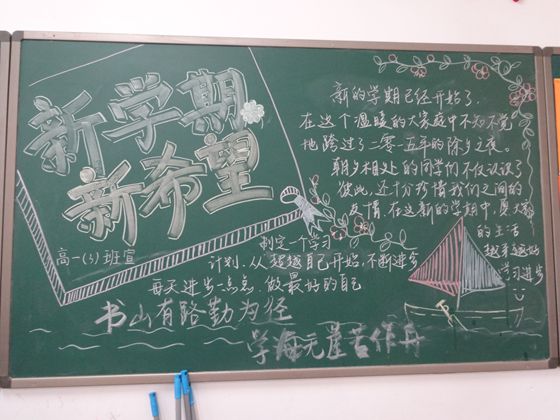 新学期
新希望
高一(5)班宣
新的学期已经开始了,
在这个温暖的大家庭中不知不觉
地跨过了二零一五年的除夕之夜。
朝夕相处的同学们不仅认识了
彼此,还十分珍惜我们之间的
友情,在这新的学期中,愿大家
的生活
越来越好
学习进步
制定一个学习
计划,从超越自己开始,不断进步
每天进步一点点,做最好的自己
书山有路勤为径
学海无崖苦作舟